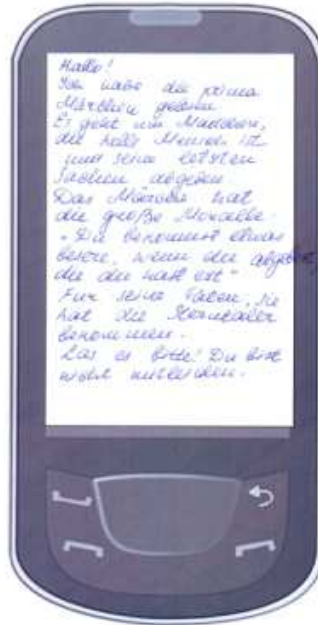 Hallo!
Ich habe die prima
Märchen gelesen
Es geht um Madchen,
die nette Mensch ist
und seine letzten
Sachen abgeben
Das Märchen hat
die große Moral
"Du bekommst etwas
besere, wenn du abgebst,
die du hast est"
Fur seine Taten, sie
hat die Sterntaler
bekommen.
Las es bitte! Du bist
nicht